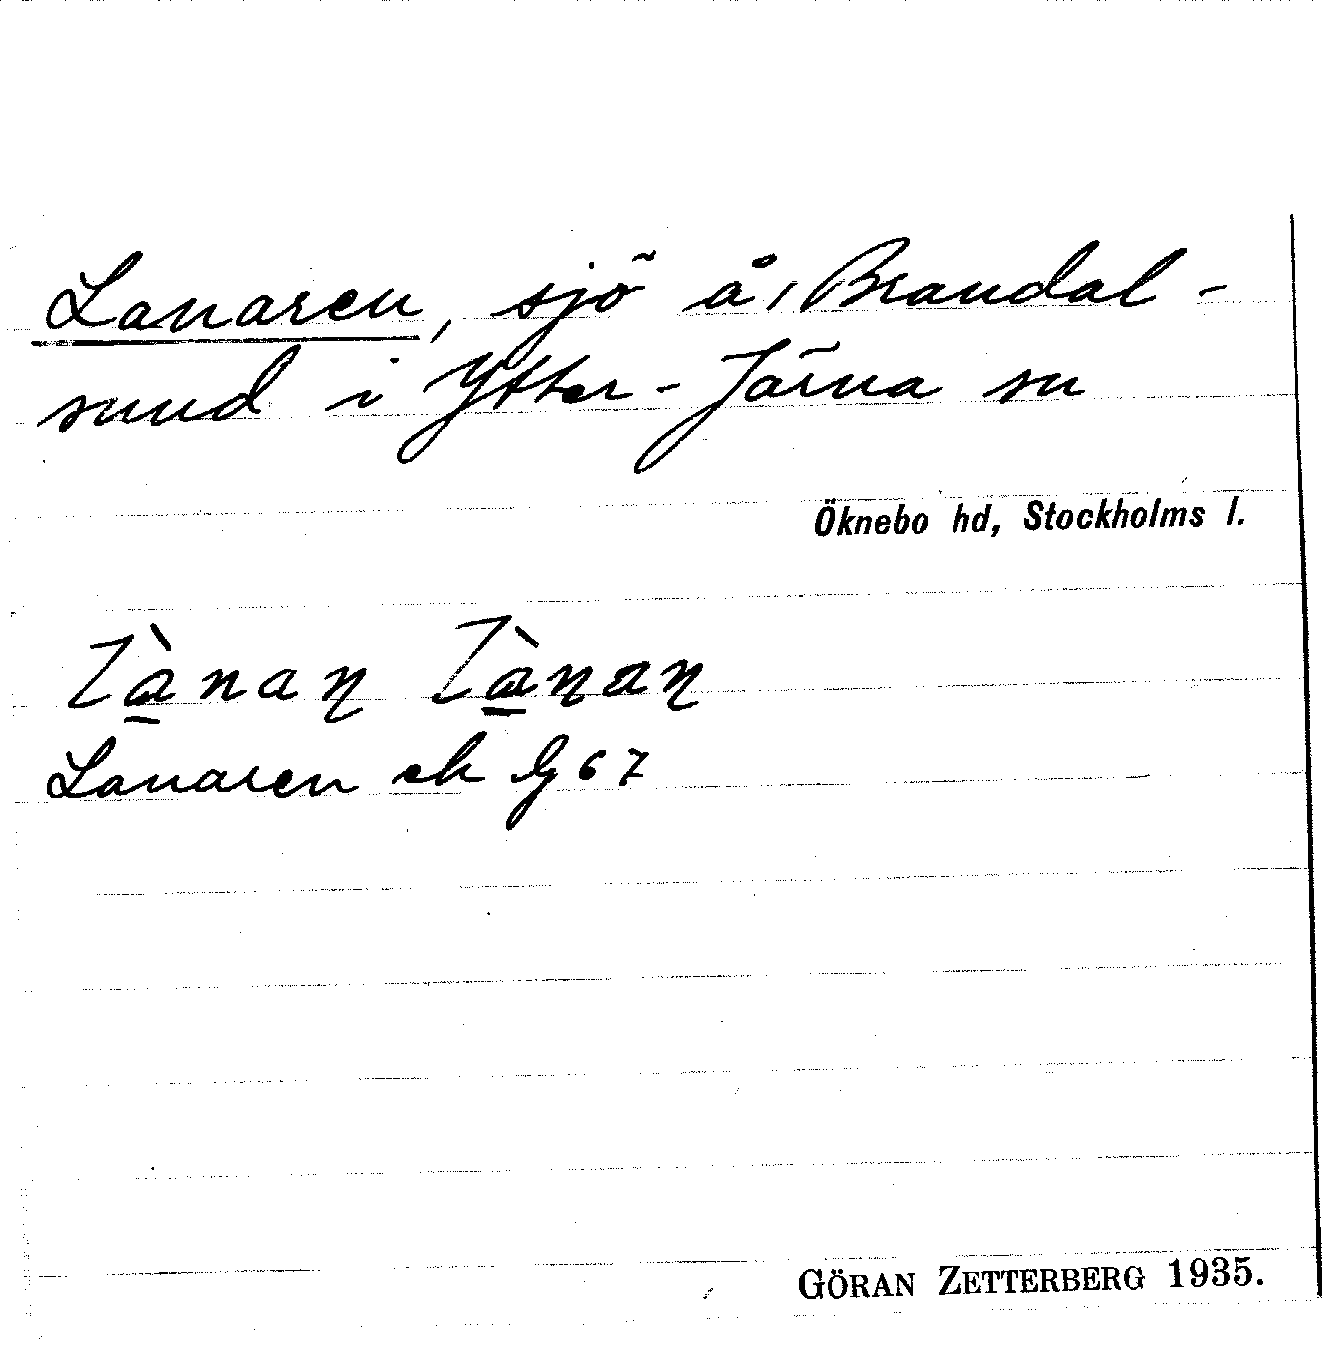 Lanaren, sjö å, Brandal-
sund i Ytter-Järna sn
Öknebo hd, Stockholms l.
Lànaη Lànaη
Lanaren ek Ig 67
GÖRAN ZETTERBERG 1935.